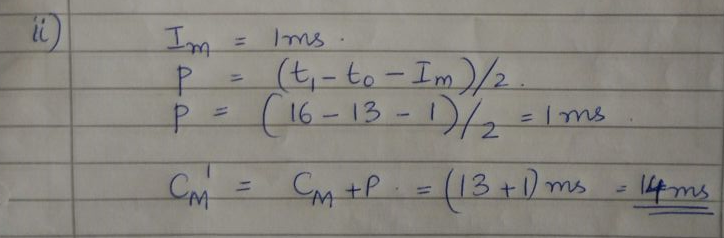 ii)
I_m = 1ms.
P = (t_1 - t_0 - I_m)/2.
P = (16 - 13 - 1)/2 = 1 ms.
C_M' = C_M + P. = (13 + 1) ms = 14 ms